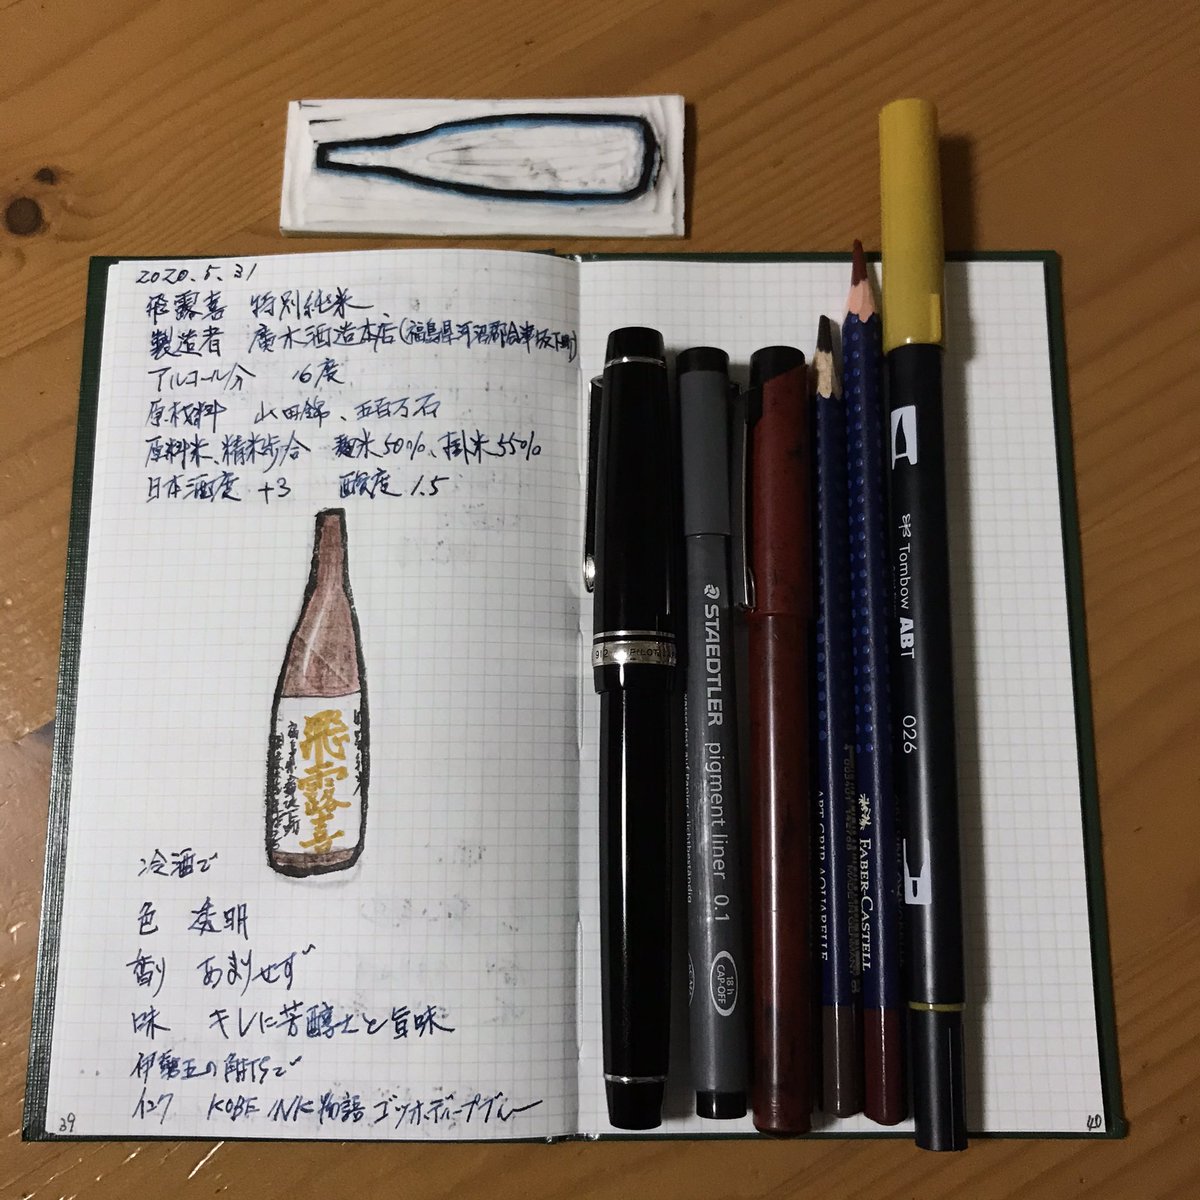 2020.5.31
飛露喜 特別純米
製造者 廣木酒造本店(福島県河沼郡会津坂下町)
アルコール分 16度
原材料 山田錦、五百万石
原料米、精米歩合 麹米50%、掛米55%
日本酒度 +3 酸度 1.5
飛露喜
冷酒で
色 透明
香り あまりせず
味 キレに芳醇さと旨味
伊勢五の角打ちで
インク KOBE INK物語 ゴッホディープブルー
39
912 PILOT
STAEDTLER pigment liner 0.1
18 h
CAP-OFF
ART GRIP AQUARELLE
FABER-CASTELL
Tombow ABT
026
40